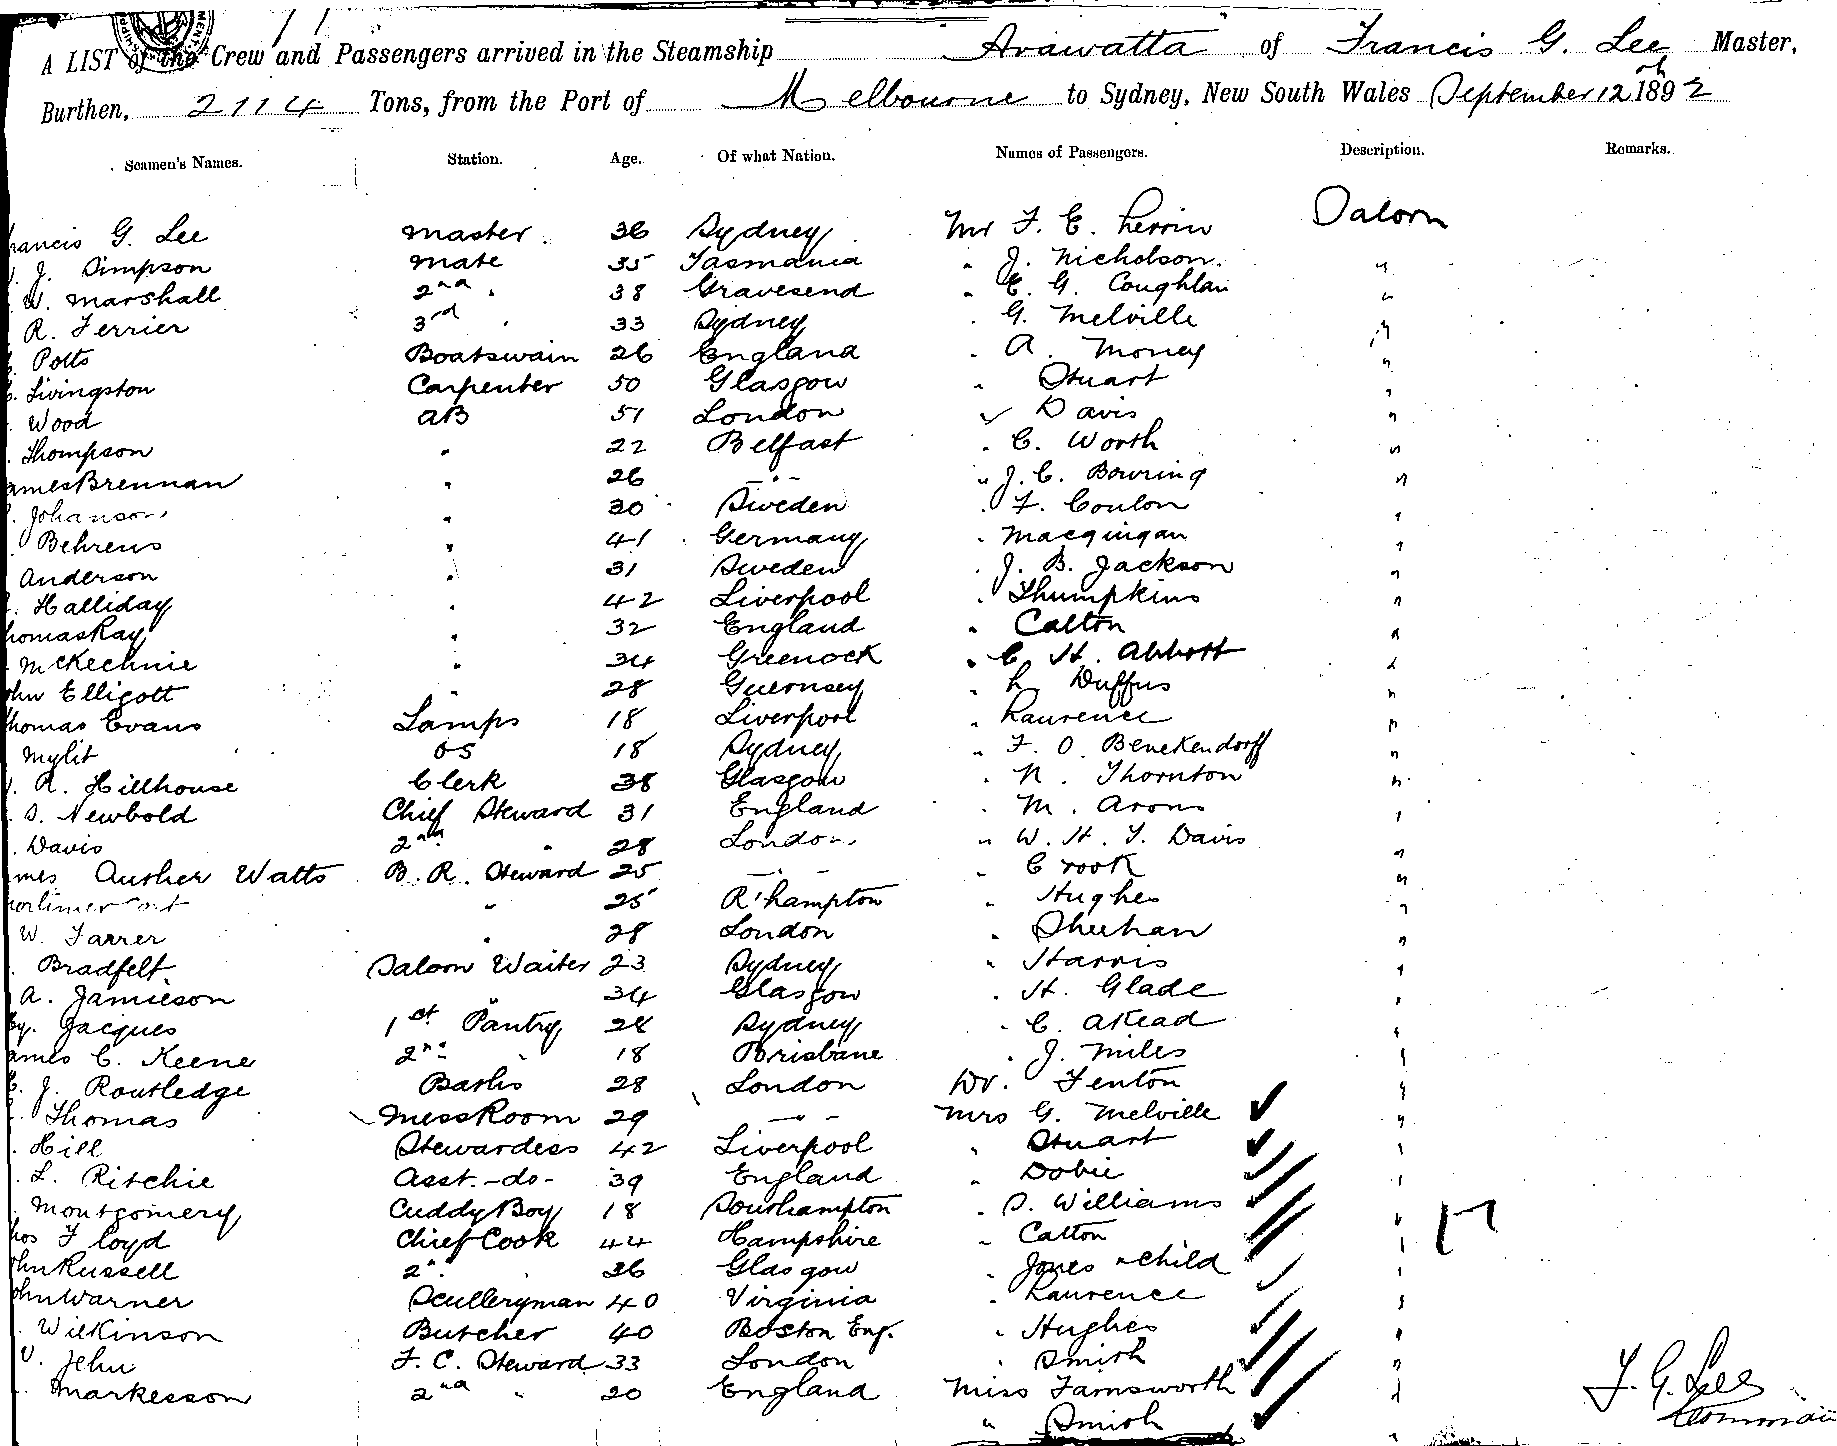 A LIST of the Crew and Passengers arrived in the Steamship Arawatta of Francis G. Lee Master,
Burthen, 2114 Tons, from the Port of Melbourne to Sydney, New South Wales September 12th 1892
Seamen's Names. Station. Age. Of what Nation. Names of Passengers. Description. Remarks.
rancis G. Lee master 36 Sydney Mr F. E. Perrin Saloon
J. Simpson mate 35 Tasmania " J. Nicholson "
W. Marshall 2nd " 38 Gravesend " E. G. Coughlan "
R. Ferrier 3rd " 33 Sydney " G. Melville "
Potts Boatswain 26 England " A. Money "
Livingston Carpenter 50 Glasgow " Stuart "
Wood AB 51 London " Davis "
Thompson " 22 Belfast " C. Worth "
ames Brennan " 26 - " - " J. C. Bowring "
Johanson " 30 Sweden " F. Coulon "
Behrens " 41 Germany " Macquigan "
Anderson " 31 Sweden " J. B. Jackson "
Halliday " 42 Liverpool " Thumpkins "
homas Ray " 32 England " Calton "
McKechnie " 34 Greenock " C. H. Abbott "
ohn Elligott " 28 Guernsey " L Duffus "
homas Evans Lamps 18 Liverpool " Laurence "
Mylit OS 18 Sydney " F. O. Benekendorff "
R. Hillhouse Clerk 38 Glasgow " N. Thornton "
S. Newbold Chief Steward 31 England " M. Arons "
Davis 2nd " 28 London " W. H. Y. Davis "
ames Auther Watts B. R. Steward 25 - " - " Crook "
ortimer " 25 R'hampton " Hughes "
W. Farrer " 28 London " Sheehan "
Bradfelt Saloon Waiter 23 Sydney " Harris "
A. Jamieson " 34 Glasgow " H. Glade "
Hy. Jacques 1st Pantry 28 Sydney " C. AKead "
ames C. Keene 2nd " 18 Brisbane " J. Miles "
E. J. Routledge Baths 28 London Dr. Fenton "
Thomas Mess Room 29 - " - Mrs G. Melville "
Hill Stewardess 42 Liverpool " Stuart "
L. Ritchie Asst. -do- 39 England " Dobie "
Montgomery Cuddy Boy 18 Southampton " S. Williams " 17
hos Floyd Chief Cook 44 Hampshire " Calton "
ohn Russell 2nd " 36 Glasgow " Jones & child "
ohn Warner Sculleryman 40 Virginia " Laurence "
Wilkinson Butcher 40 Boston Eng. " Hughes "
Jehu F. C. Steward 33 London " Smith "
Markesson 2nd " 20 England Miss Farnsworth "
" Smith "
F. G. Lee
Comman